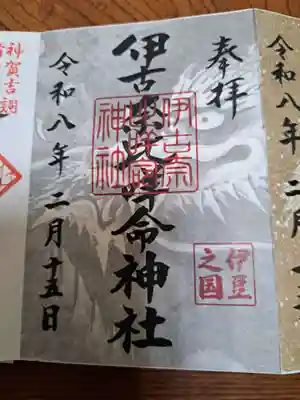 奉拝
伊古奈比咩命神社
伊古奈
神社
伊豆
之国
令和八年 二月十五日
令和八年 二月十五日
神賀吉詞